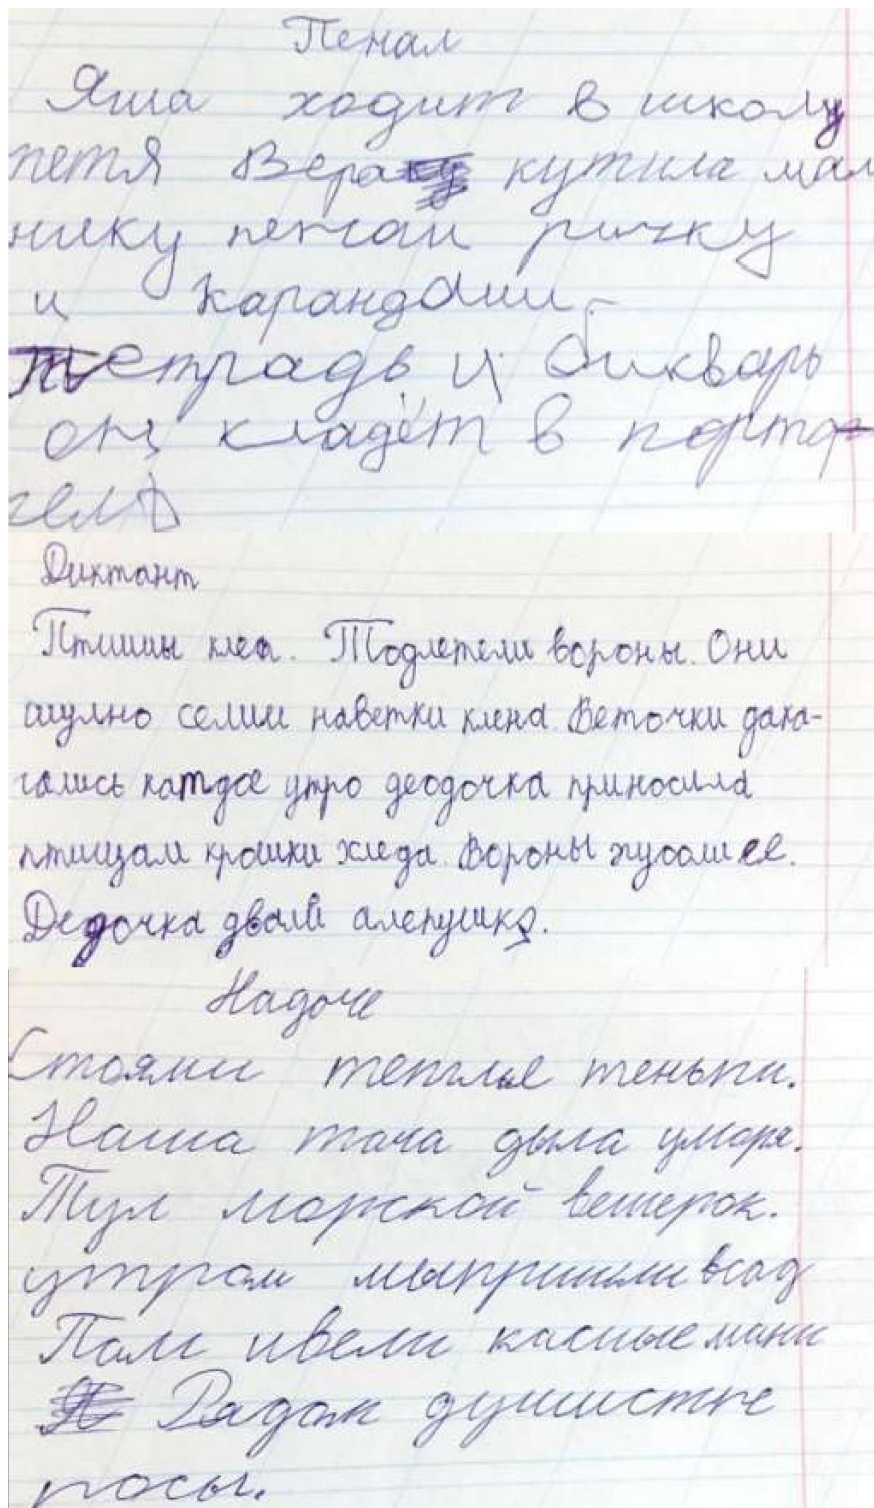 Пенал
Яша ходит в школу
петя Вера кутила мал
чику пенал ричку
и карандаш
тетрадь и бикварь
он кладёт в портф
Диктант
Птицы клеа. Тодлетели вороны. Они
шулно селии наветки клена. Веточки дака-
гались катдое утро деодочка приносила
птицам крошки хледа. Вороны
Дедочка двали алепушка.
Надоче
Стояли теплые теньпи.
Наша тача дыла уморя.
Тул моркой вешерок.
утром мыпришливсад
Пам цвели касные маки
Радам душистке
росы.